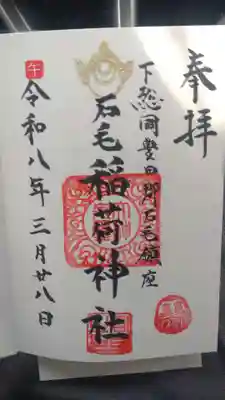 奉拝
下総国豊田郡石毛鎮座
石毛稲荷神社
令和八年三月廿八日
午